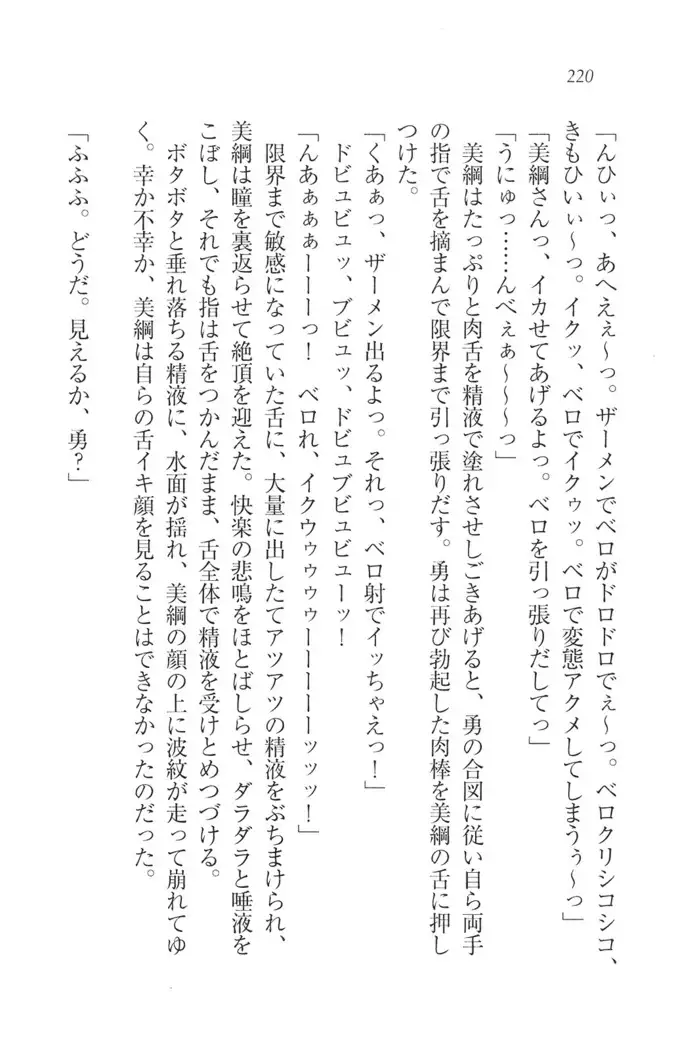 220
「んひぃっ、あへえぇ～っ。ザーメンでベロがドロドロでぇ～っ。ベロクリシコシコ、
きもひいぃ～っ。イクッ、ベロでイクゥッ。ベロで変態アクメしてしまうぅ～っ」
「美綱さんっ、イカせてあげるよっ。ベロを引っ張りだしてっ」
「うにゅっ……んべぇぁ～～～っ」
　美綱はたっぷりと肉舌を精液で塗れさせしごきあげると、勇の合図に従い自ら両手
の指で舌を摘まんで限界まで引っ張りだす。勇は再び勃起した肉棒を美綱の舌に押し
つけた。
「くあぁっ、ザーメン出るよっ。それっ、ベロ射でイッちゃえっ！」
　ドビュビュッ、ブビュッ、ドビュブビュビューッ！
「んあぁぁぁーーーっ！　ベロれ、イクウゥゥゥゥーーーーーッッッ！」
　限界まで敏感になっていた舌に、大量に出したてアツアツの精液をぶちまけられ、
美綱は瞳を裏返らせて絶頂を迎えた。快楽の悲鳴をほとばしらせ、ダラダラと唾液を
こぼし、それでも指は舌をつかんだまま、舌全体で精液を受けとめつづける。
　ボタボタと垂れ落ちる精液に、水面が揺れ、美綱の顔の上に波紋が走って崩れてゆ
く。幸か不幸か、美綱は自らの舌イキ顔を見ることはできなかったのだった。
「ふふふ。どうだ。見えるか、勇？」